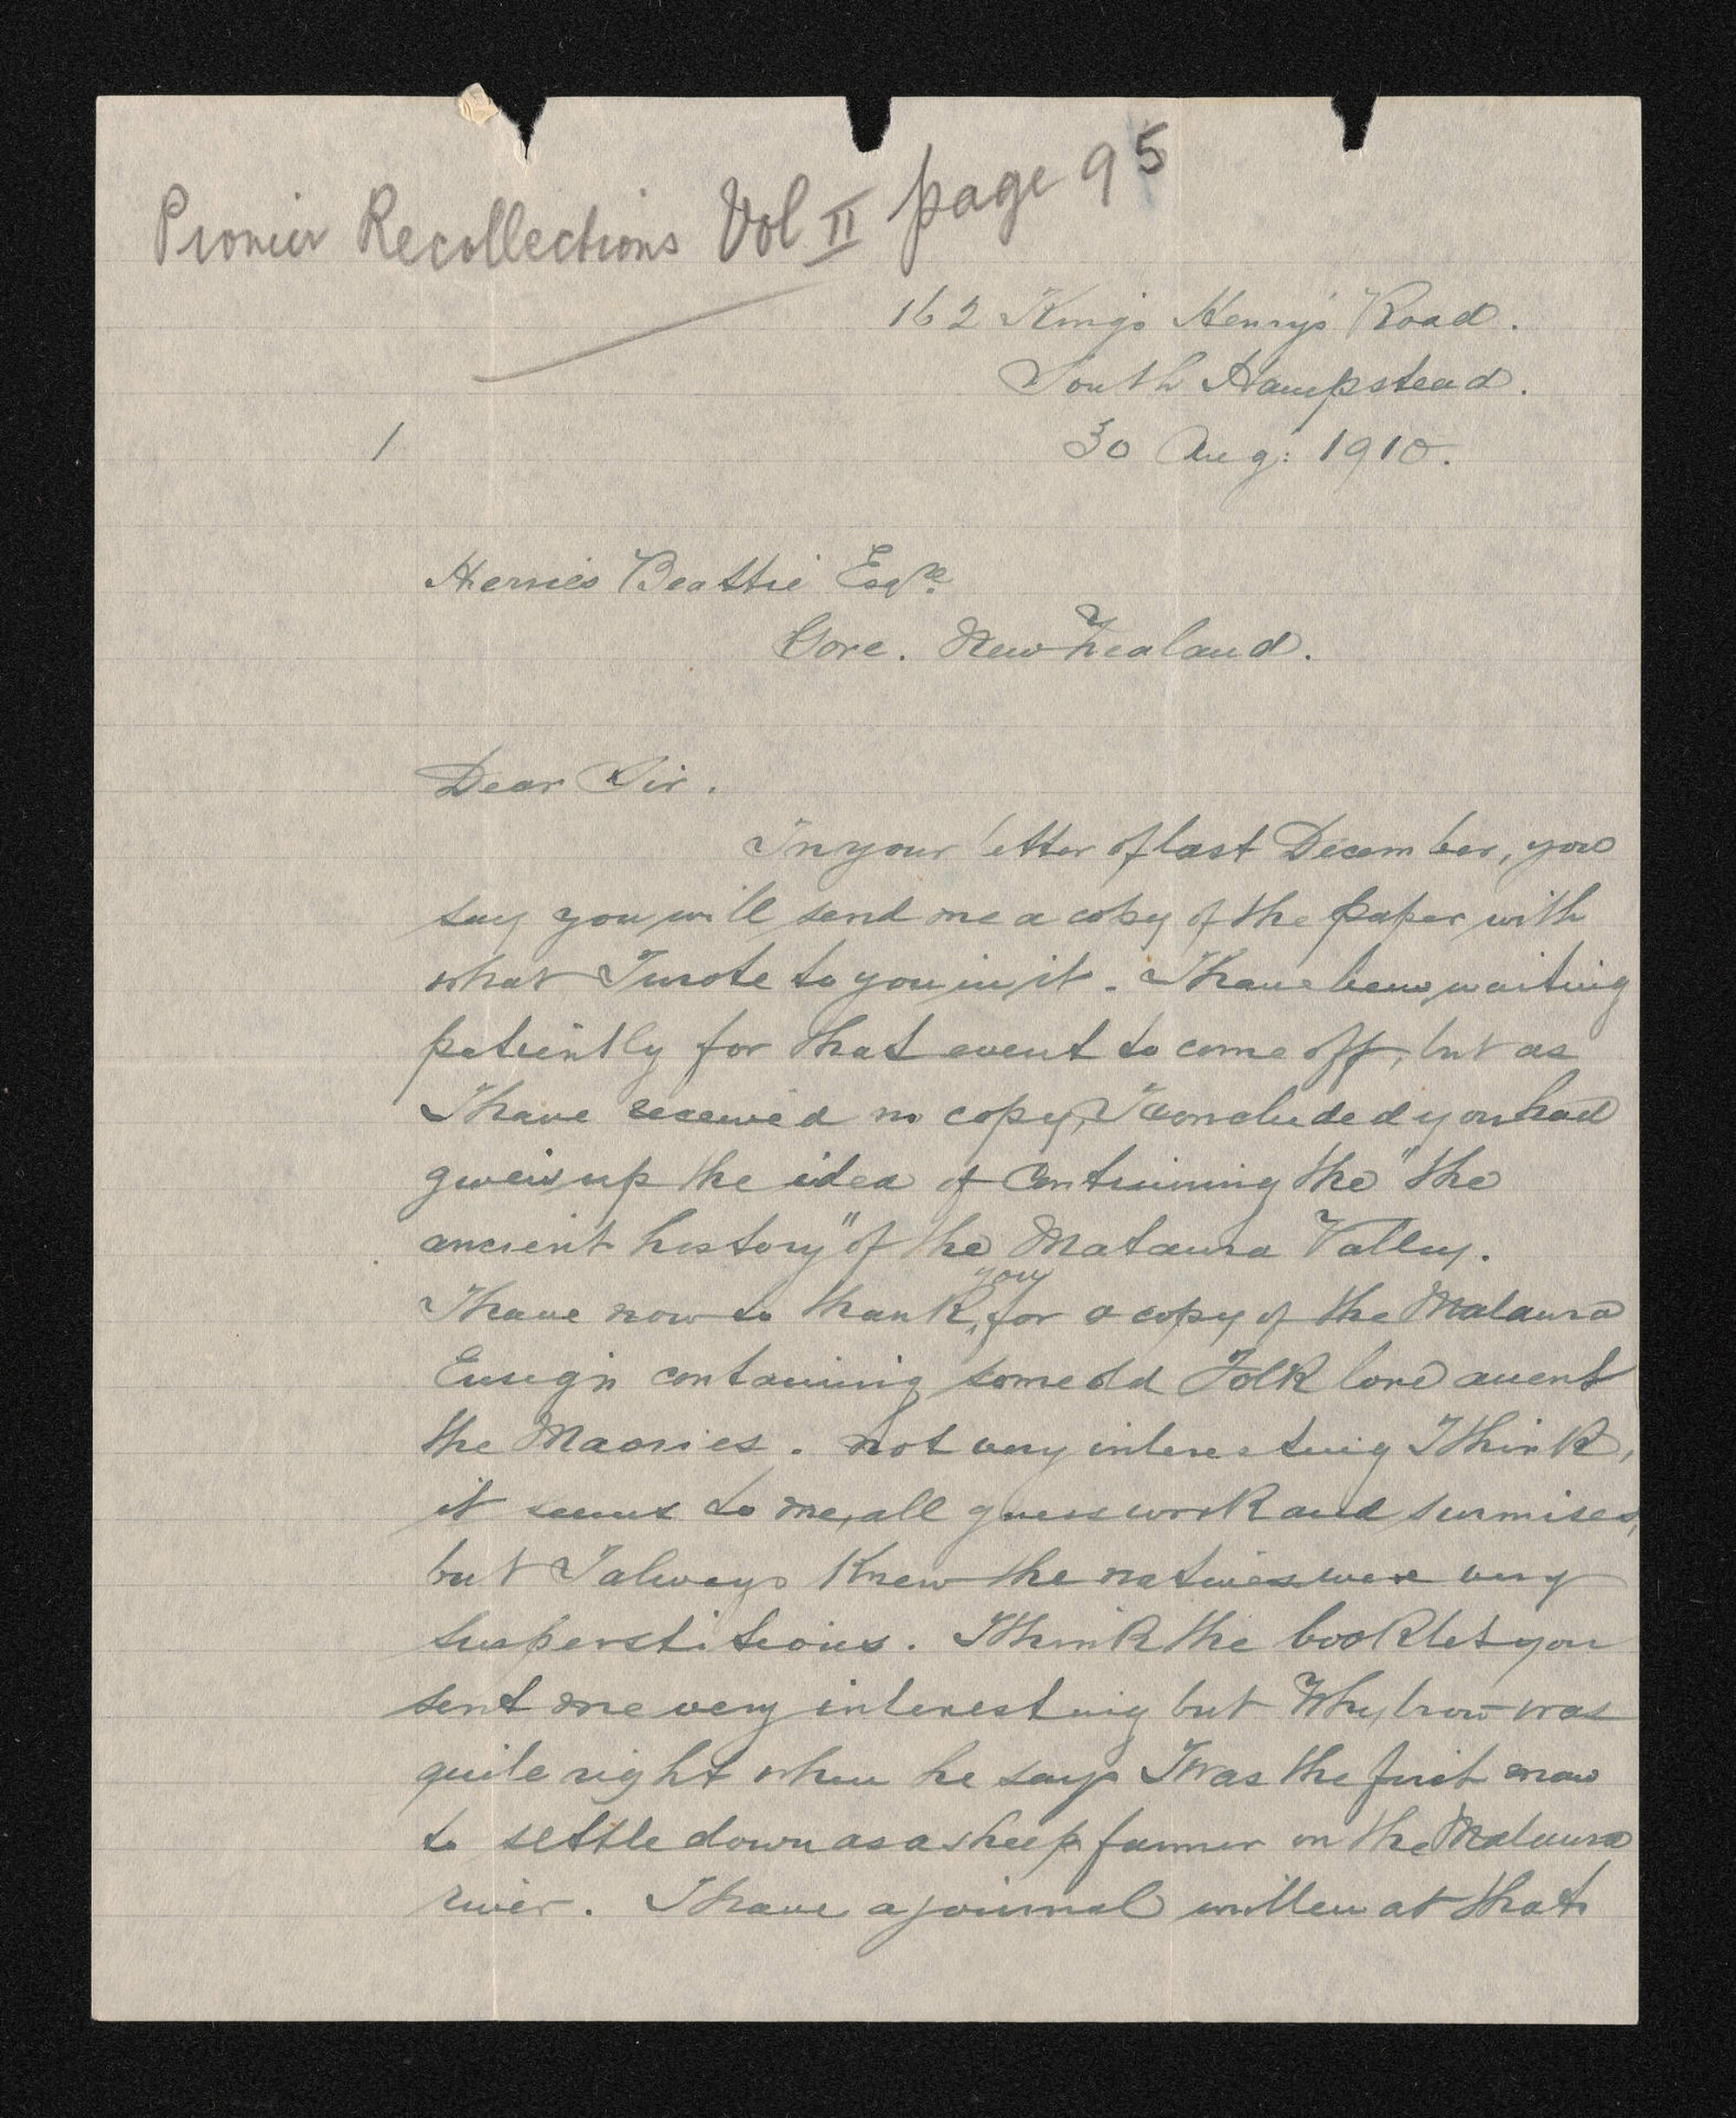 Pionier Recollections Vol II page 95
162 Kings Henrys Road.
South Hampstead.
1
30 Aug: 1910.
Herries Beattie Esqre.
Gore. New Zealand.
Dear Sir.
In your letter of last December, you
say you will send me a copy of the paper with
what I wrote to you in it. I have been waiting
patiently for that event to come off, but as
I have received no copy, I concluded you had
given up the idea of Continuing the "the
ancient history" of the Mataura Valley.
I have now to thank you for a copy of the Mataura
Ensign containing some old Folk lore anent
the Maories. not very interesting I think,
it seems to me, all guess work and surmises,
but I always Knew the natives were very
superstitious. I think the booklet you
sent me very interesting but Whybrow was
quite right when he says I was the first man
to settle down as a sheep farmer on the Mataura
river. I have a journal written at that